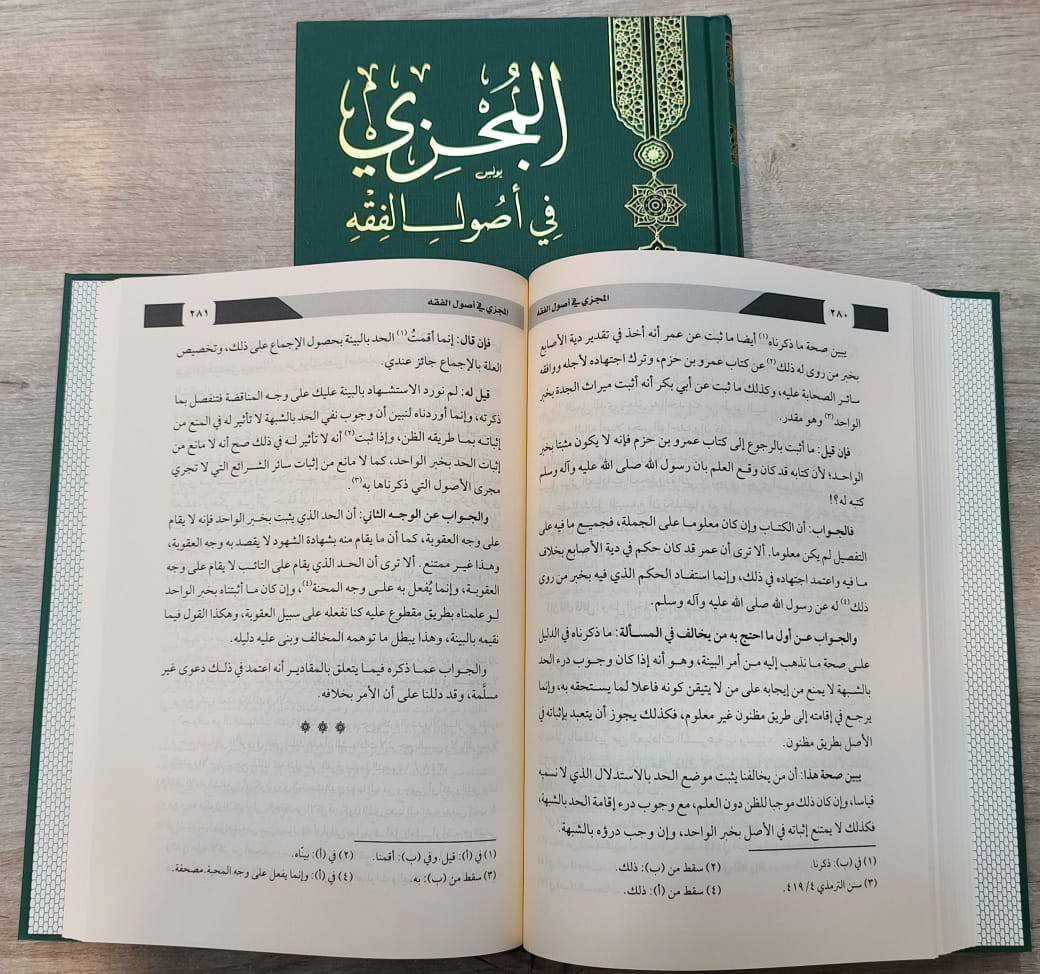 المجزي
يونس
في أصول الفقه
المجزي في أصول الفقه
٢٨٠
يبين صحة ما ذكرناه(١) أيضا ما ثبت عن عمر أنه أخذ في تقدير دية الأصابع
بخبر من روى له ذلك(٢) عن كتاب عمرو بن حزم، وترك اجتهاده لأجله ووافقه
سائر الصحابة عليه، وكذلك ما ثبت عن أبي بكر أنه أثبت ميراث الجدة بخبر
الواحد(٣) وهو مقدر.
فإن قيل: ما أثبت بالرجوع إلى كتاب عمرو بن حزم فإنه لا يكون مثبتا بخبر
الواحد؛ لأن كتابه قد كان وقع العلم بان رسول الله صلى الله عليه وآله وسلم
كتبه له؟!
فالجواب: أن الكتاب وإن كان معلوما على الجملة، فجميع ما فيه على
التفصيل لم يكن معلوما. ألا ترى أن عمر قد كان حكم في دية الأصابع بخلاف
ما فيه واعتمد اجتهاده في ذلك، وإنما استفاد الحكم الذي فيه بخبر من روى
ذلك(٤) له عن رسول الله صلى الله عليه وآله وسلم.
والجواب عن أول ما احتج به من يخالف في المسألة: ما ذكرناه في الدليل
على صحة ما نذهب إليه من أمر البينة، وهو أنه إذا كان وجوب درء الحد
بالشبهة لا يمنع من إيجابه على من لا يتيقن كونه فاعلا لما يستحقه به، وإنما
يرجع في إقامته إلى طريق مظنون غير معلوم، فكذلك يجوز أن يتعبد بإثباته في
الأصل بطريق مظنون.
يبين صحة هذا: أن من يخالفنا يثبت موضع الحد بالاستدلال الذي لا نسميه
قياسا، وإن كان ذلك موجبا للظن دون العلم، مع وجوب درء إقامة الحد بالشبهة،
فكذلك لا يمتنع إثباته في الأصل بخبر الواحد، وإن وجب درؤه بالشبهة.
(١) في (ب): ذكرنا. (٢) سقط من (ب): ذلك.
(٣) سنن الترمذي ٤١٩/٤. (٤) سقط من (أ): ذلك.
المجزي في أصول الفقه
٢٨١
فإن قال: إنما أقمَتُ(١) الحد بالبينة بحصول الإجماع على ذلك، وتخصيص
العلة بالإجماع جائز عندي.
قيل له: لم نورد الاستشهاد بالبينة عليك على وجه المناقضة فتنفصل بما
ذكرته، وإنما أوردناه لنبين أن وجوب نفي الحد بالشبهة لا تأثير له في المنع من
إثباته بما طريقه الظن، وإذا ثبت(٢) أنه لا تأثير له في ذلك صح أنه لا مانع من
إثبات الحد بخبر الواحد، كما لا مانع من إثبات سائر الشرائع التي لا تجري
مجرى الأصول التي ذكرناها به(٣).
والجواب عن الوجه الثاني: أن الحد الذي يثبت بخبر الواحد فإنه لا يقام
على وجه العقوبة، كما أن ما يقام منه بشهادة الشهود لا يقصد به وجه العقوبة،
وهذا غير ممتنع. ألا ترى أن الحد الذي يقام على التائب لا يقام على وجه
العقوبة، وإنما يُفعل به على وجه المحنة(٤)، وإن كان ما أثبتناه بخبر الواحد
لو علمناه بطريق مقطوع عليه كنا نفعله على سبيل العقوبة، وهكذا القول فيما
نقيمه بالبينة، وهذا يبطل ما توهمه المخالف وبنى عليه دليله.
والجواب عما ذكره فيما يتعلق بالمقادير أنه اعتمد في ذلك دعوى غير
مسلَّمة، وقد دللنا على أن الأمر بخلافه.
(١) في (أ): قيل. وفي (ب): أقمنا. (٢) في (أ): بيناه.
(٣) سقط من (ب): به. (٤) في (أ): وإنما يفعل على وجه المحبة. مصحفة.